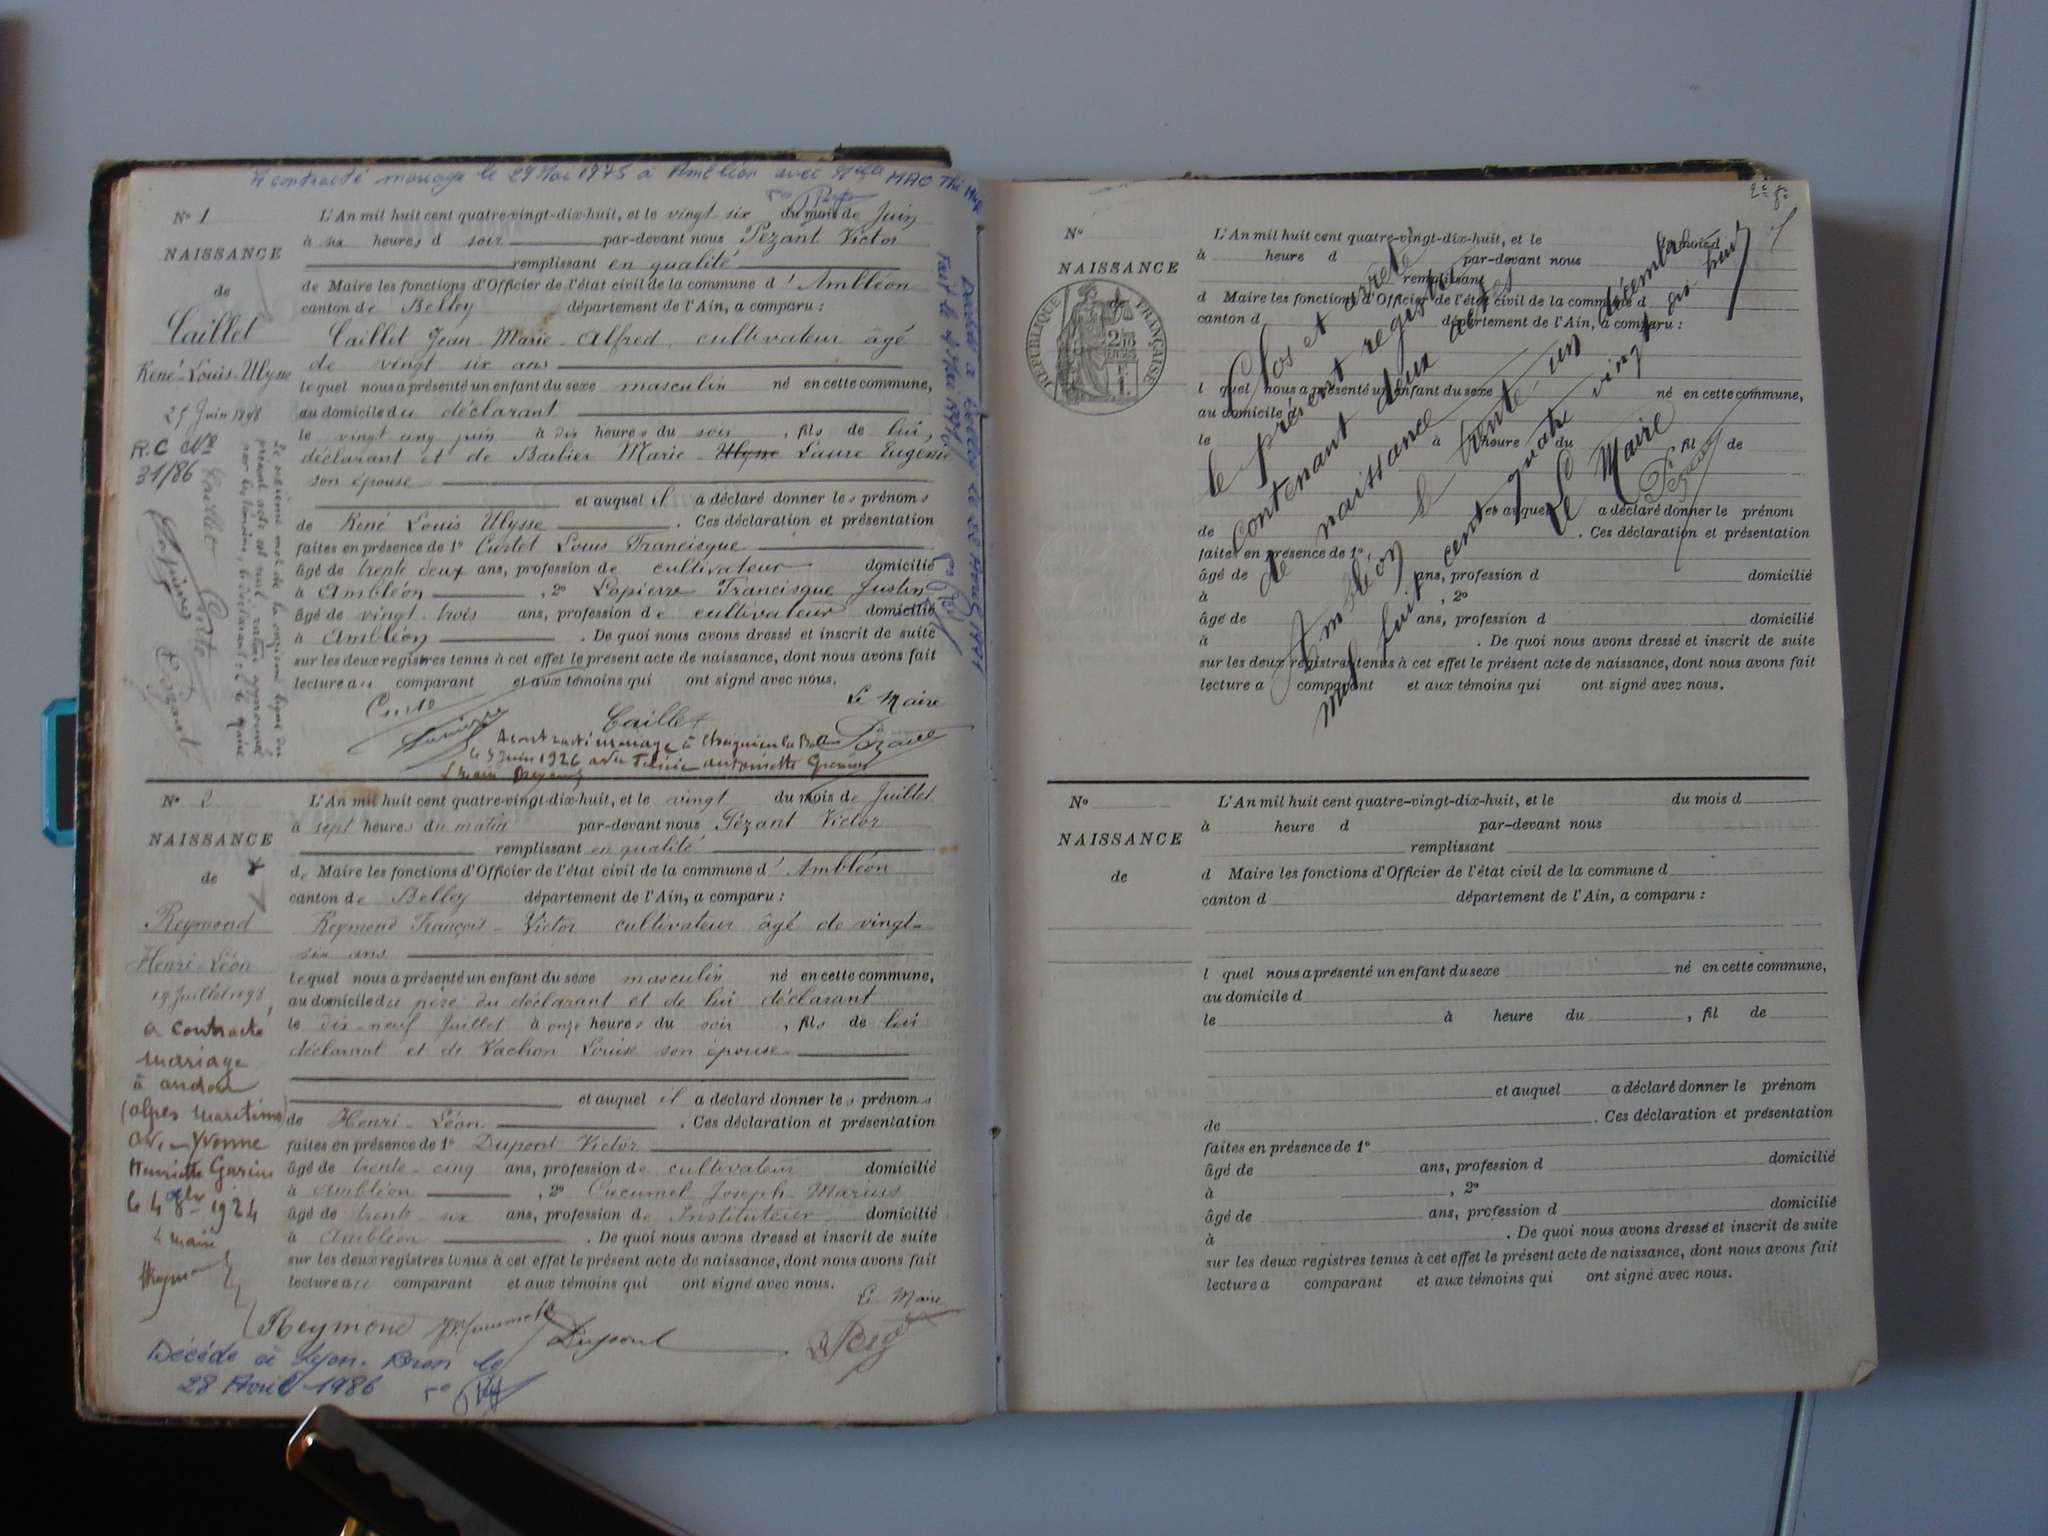 A contracté mariage le 29 Mai 1975 à Ambléon avec Melle MAC Thi
N° 1
NAISSANCE
de
Caillet
René-Louis-Ulysse
25 Juin 1898
R.C N°
31/86
L'An mil huit cent quatre-vingt-dix-huit, et le vingt six du mois de Juin
à six heures d soir par-devant nous Pézant Victor
remplissant en qualité
de Maire les fonctions d'Officier de l'état civil de la commune d'Ambléon
canton de Belley département de l'Ain, a comparu :
Caillet Jean-Marie-Alfred, cultivateur âgé
de vingt six ans
lequel nous a présenté un enfant du sexe masculin né en cette commune,
au domicile du déclarant
le vingt cinq juin à dix heures du soir, fils de lui,
déclarant et de Barbier Marie-Ulysse Laure Eugénie
son épouse
et auquel il a déclaré donner les prénoms
de René Louis Ulysse. Ces déclaration et présentation
faites en présence de 1° Curtet Louis Francisque
âgé de trente deux ans, profession de cultivateur domicilié
à Ambléon, 2° Lapierre Francisque Justin
âgé de vingt-trois ans, profession de cultivateur domicilié
à Ambléon. De quoi nous avons dressé et inscrit de suite
sur les deux registres tenus à cet effet le présent acte de naissance, dont nous avons fait
lecture au comparant et aux témoins qui ont signé avec nous.
Le Maire
Caillet
A contracté mariage à
le 5 Juin 1926 avec Antoinette
Le sixième mot de la onzième ligne du
présent acte est nul, rature approuvée
par les témoins, le déclarant et le Maire
Caillet
N° 2
NAISSANCE
de
Reymond
Henri-Léon
19 Juillet 1898
a contracté
mariage
à andon
(alpes maritimes)
avec Yvonne
Henriette Garin
le 4 8bre 1924
le maire
Reymond
L'An mil huit cent quatre-vingt-dix-huit, et le vingt du mois de Juillet
à sept heures du matin par-devant nous Pézant Victor
remplissant en qualité
de Maire les fonctions d'Officier de l'état civil de la commune d'Ambléon
canton de Belley département de l'Ain, a comparu :
Reymond François-Victor cultivateur âgé de vingt-
six ans
lequel nous a présenté un enfant du sexe masculin né en cette commune,
au domicile du père du déclarant et de lui déclarant
le dix-neuf Juillet à onze heures du soir, fils de lui
déclarant et de Vachon Louise son épouse
et auquel il a déclaré donner les prénoms
de Henri-Léon. Ces déclaration et présentation
faites en présence de 1° Dupont Victor
âgé de trente-cinq ans, profession de cultivateur domicilié
à Ambléon, 2° Cucumel Joseph-Marius
âgé de trente-six ans, profession de Instituteur domicilié
à Ambléon. De quoi nous avons dressé et inscrit de suite
sur les deux registres tenus à cet effet le présent acte de naissance, dont nous avons fait
lecture au comparant et aux témoins qui ont signé avec nous.
Le Maire
Reymond
Dupont
Décédé à Lyon-Bron le
28 Avril 1986
N°
NAISSANCE
de
RÉPUBLIQUE FRANÇAISE
L'An mil huit cent quatre-vingt-dix-huit, et le du mois d
à heure d par-devant nous
remplissant
d Maire les fonctions d'Officier de l'état civil de la commune d
canton d département de l'Ain, a comparu :
l quel nous a présenté un enfant du sexe né en cette commune,
au domicile d
le à heure du, fil de
et auquel a déclaré donner le prénom
de. Ces déclaration et présentation
faites en présence de 1°
âgé de ans, profession d domicilié
à, 2°
âgé de ans, profession d domicilié
à. De quoi nous avons dressé et inscrit de suite
sur les deux registres tenus à cet effet le présent acte de naissance, dont nous avons fait
lecture a comparant et aux témoins qui ont signé avec nous.
Clos et arrêté
le présent registre
contenant deux actes
de naissance le trente un décembre
mil huit cent quatre vingt dix huit
Ambléon
Le Maire
Pézant
N°
NAISSANCE
de
L'An mil huit cent quatre-vingt-dix-huit, et le du mois d
à heure d par-devant nous
remplissant
d Maire les fonctions d'Officier de l'état civil de la commune d
canton d département de l'Ain, a comparu :
l quel nous a présenté un enfant du sexe né en cette commune,
au domicile d
le à heure du, fil de
et auquel a déclaré donner le prénom
de. Ces déclaration et présentation
faites en présence de 1°
âgé de ans, profession d domicilié
à, 2°
âgé de ans, profession d domicilié
à. De quoi nous avons dressé et inscrit de suite
sur les deux registres tenus à cet effet le présent acte de naissance, dont nous avons fait
lecture a comparant et aux témoins qui ont signé avec nous.